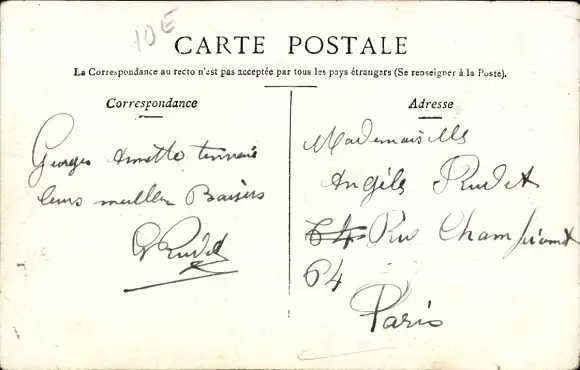 10E
CARTE POSTALE
La Correspondance au recto n'est pas acceptée par tous les pays étrangers (Se renseigner à la Poste).
Correspondance
Georges
leurs meilleu Baisers
G Rudet
Adresse
Mademoiselle
Angèle Rudet
64 Rue Championnet
64
Paris